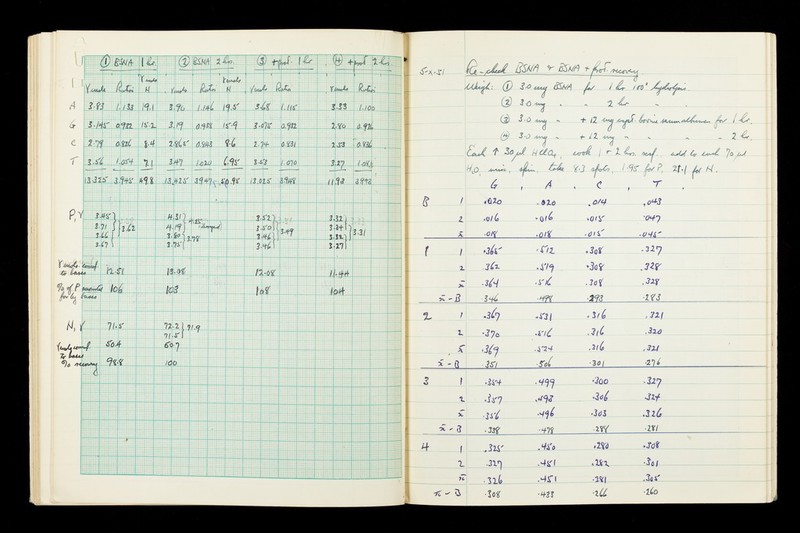 ① BSNA 1 hr. ② BSNA 2 hr. ③ + prot. 1 hr. ④ + prot 2 hr.
γ mole Ratio N γ mole Ratio γ mole N γ mole Ratio γ mole Ratio
A 3.83 1.133 19.1 3.90 1.146 19.5 3.68 1.115 3.33 1.100
G 3.145 0.932 15.2 3.19 0.938 15.9 3.075 0.932 2.80 0.926
C 2.79 0.826 8.4 2.865 0.843 8.6 2.74 0.831 2.53 0.836
T 3.56 1.054 7.1 3.47 1.020 6.95 3.53 1.070 3.27
13.325 3.945 49.8 13.425 3.947 50.95 13.025 3.948 11.93
P, γ 3.45 4.31 3.52 3.32
3.71 3.62 4.19 3.50 3.49 3.24 3.31
3.66 3.80 3.78 3.46 3.32
3.67 3.75 3.46 3.27
to bases 12.51 13.08 12.08 11.44
% of P 106 103 108 104
for by bases
N, γ 71.5 72.2 71.9
71.5
50.4 60.7
to bases
% recovery 98.8 100
5-X-51 Re-check BSNA + BSNA + prot recovery
Weigh: ① 3.0 mg BSNA for 1 hr. 100° hydrolysis.
② 3.0 mg " " 2 hr " "
③ 3.0 mg " + 12 mg cryst bovine serum albumen for 1 hr.
④ 3.0 mg " + 12 mg " " " " 2 hr.
Each ↑ 30 μl HClO₄, cook 1 + 2 hrs resp. add to each 70 μl
H₂O, mix, spin. Take 8.3 spots, 1.95 for P, 28.1 for N.
G , A , C , T .
B 1 .020 .020 .014 .043
2 .016 .016 .015 .047
x̄ .018 .018 .015 .045
1 1 .365 .512 .308 .327
2 .362 .519 .308 .328
x̄ .364 .516 .308 .328
x̄ - B .346 .498 .293 .283
2 1 .367 .531 .316 .321
2 .370 .516 .316 .320
x̄ .369 .524 .316 .321
x̄ - B .351 .506 .301 .276
3 1 .354 .499 .300 .327
2 .357 .493 .306 .324
x̄ .356 .496 .303 .326
x̄ - B .338 .478 .288 .281
4 1 .325 .450 .280 .308
2 .327 .451 .282 .301
x̄ .326 .451 .281 .305
x̄ - B .308 .433 .266 .260